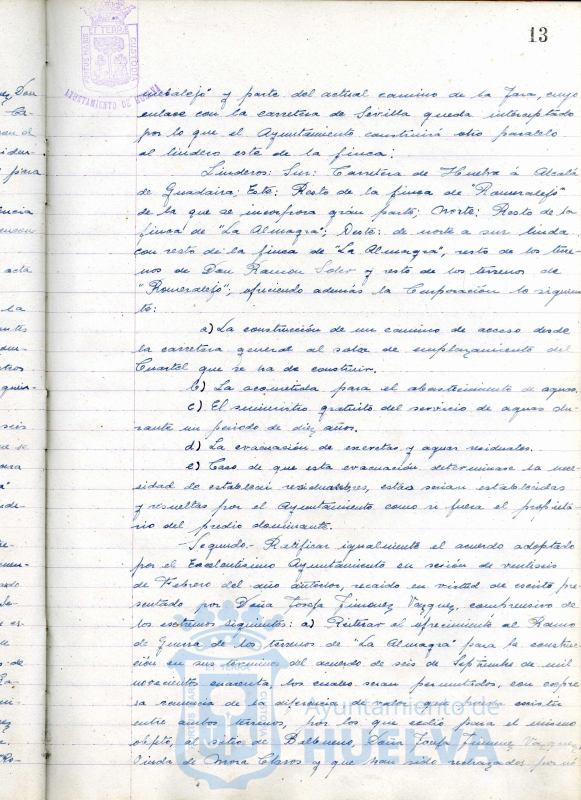 13
AYUNTAMIENTO DE HUELVA
y parte del actual camino de la Jara, cuyo
enlace con la carretera de Sevilla queda interceptado
por lo que el Ayuntamiento construirá otro paralelo
al lindero este de la finca:
Linderos: Sur: Carretera de Huelva á Alcalá
de Guadaira; Este: Resto de la finca de "Romeralejo"
de la que se incorpora gran parte; Norte: Resto de la
finca de "La Almagra"; Oeste: de norte a sur linda
con resto de la finca de "La Almagra", resto de los terre-
nos de Don Ramon Soler y resto de los terrenos de
"Romeralejo", ofreciendo además la Corporación lo siguien-
te:
a) La construcción de un camino de acceso desde
la carretera general al solar de emplazamiento del
Cuartel que se ha de construir.
b) La acometida para el abastecimiento de aguas.
c) El suministro gratuito del servicio de aguas du-
rante un periodo de diez años.
d) La evacuación de excretas y aguas residuales.
e) Caso de que esta evacuación determinase la nece-
sidad de establecer residuales, estas serian establecidas
y resueltas por el Ayuntamiento como si fuera el propieta-
rio del predio dominante.
Segundo.- Ratificar igualmente el acuerdo adoptado
por el Excelentisimo Ayuntamiento en sesión de veintiseis
de Febrero del año anterior, recaido en virtud de escrito pre-
sentado por Doña Josefa Jimenez Vazquez, comprensivo de
los extremos siguientes: a) Reiterar el ofrecimiento al Ramo
de Guerra de los terrenos de "La Almagra" para la construc-
ción en sus terminos del acuerdo de seis de Septiembre de mil
novecientos cuarenta, los cuales seran permutados, con expre-
sa renuncia de la diferencia de valor que pueda existir
entre ambos terrenos, por los que cedió para el mismo
objeto, al sitio de Balbueno Doña Josefa Jimenez Vazquez,
Viuda de Mora Claros y que han sido rechazados por no
Ayuntamiento de
HUELVA